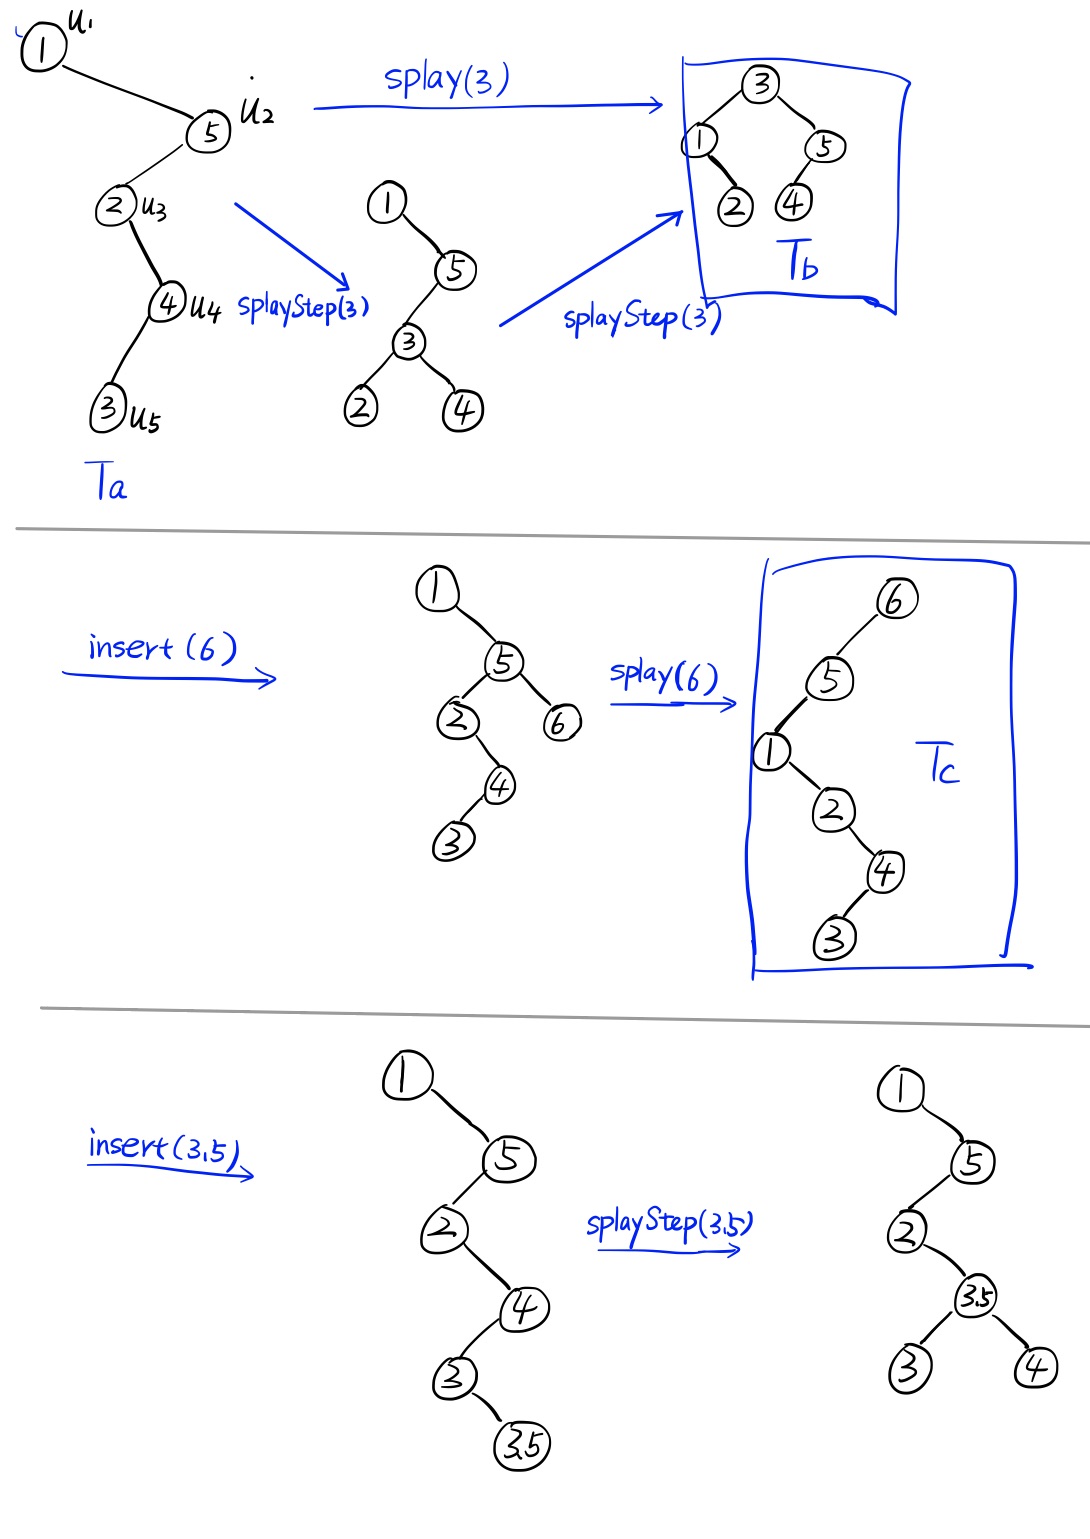 1 u₁
5 u₂
2 u₃
4 u₄
3 u₅
Ta
splay(3)
splayStep(3)
1
5
3
2 4
splayStep(3)
3
1 5
2 4
Tb
insert(6)
1
5
2 6
4
3
splay(6)
6
5
1
2
4
3
Tc
insert(3.5)
1
5
2
4
3
3.5
splayStep(3.5)
1
5
2
3.5
3 4